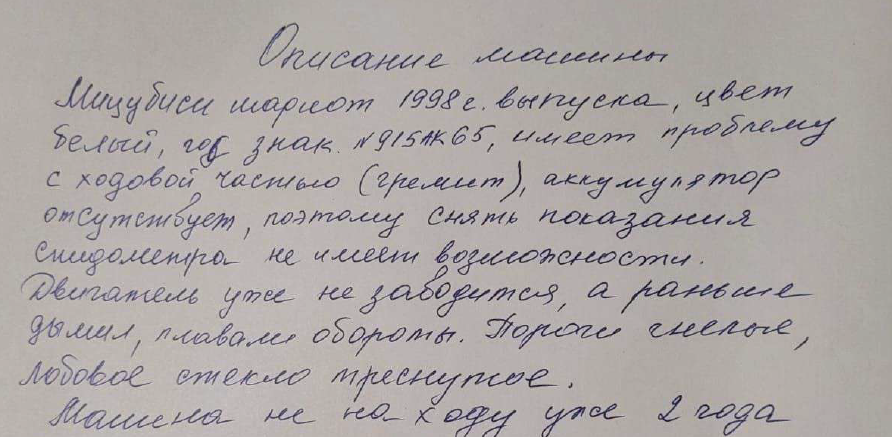 Описание машины
Мицубиси шариот 1998 г. выпуска, цвет
белый, гос знак. N915АК65, имеет проблему
с ходовой частью (гремит), аккумулятор
отсутствует, поэтому снять показания
спидометра не имеет возможности.
Двигатель уже не заводится, а раньше
дымил, плавали обороты. Пороги гнелые,
лобовое стекло треснутое.
Машина не на ходу уже 2 года